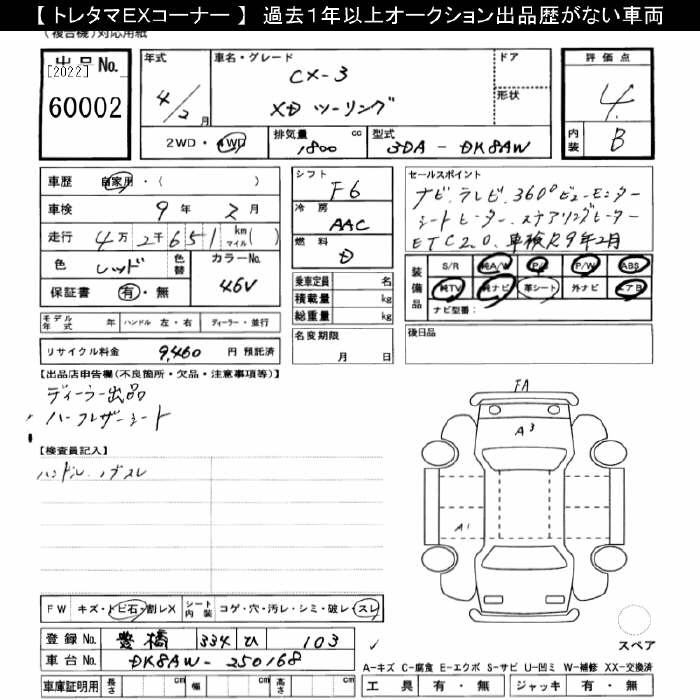 【 トレタマEXコーナー 】 過去1年以上オークション出品歴がない車両
(複合機)対応用紙
出品No.
[2022]
60002
年式
4/2月
車名・グレード
CX-3
XD ツーリング
ドア
形状
評価点
4
内装 B
2WD・4WD
排気量 1800 cc
型式 3DA - DK8AW
車歴 自家用・( )
車検 9年 2月
走行 4万 2千 651 km マイル( )
色 レッド 色替 カラーNo. 46V
保証書 有・無
シフト F6
冷房 AAC
燃料 D
乗車定員 名
積載量 kg
総重量 kg
名変期限 月 日
セールスポイント
ナビ.テレビ.360°ビューモニター
シートヒーター.ステアリングヒーター
ETC2.0.車検R9年2月
装備品
S/R 純A/W P/S P/W ABS
純TV 純ナビ 革シート 外ナビ エアB
ナビ型番:
モデル年式 年 ハンドル 左・右 ディーラー・並行
リサイクル料金 9,460 円 預託済
後日品
【出品店申告欄(不良箇所・欠品・注意事項等)】
ディーラー出品
ハーフレザーシート
【検査員記入】
ハンドル、ノブスレ
FA
A3
A1
FW キズ・トビ石・割レX シート内装 コゲ・穴・汚レ・シミ・破レ・スレ
登録No. 豊橋 334 ひ 103
車台No. DK8AW-250168
車庫証明用 長さ cm 幅 cm 高さ cm
スペア
A-キズ C-腐食 E-エクボ S-サビ U-凹ミ W-補修 XX-交換済
工具 有・無 ジャッキ 有・無